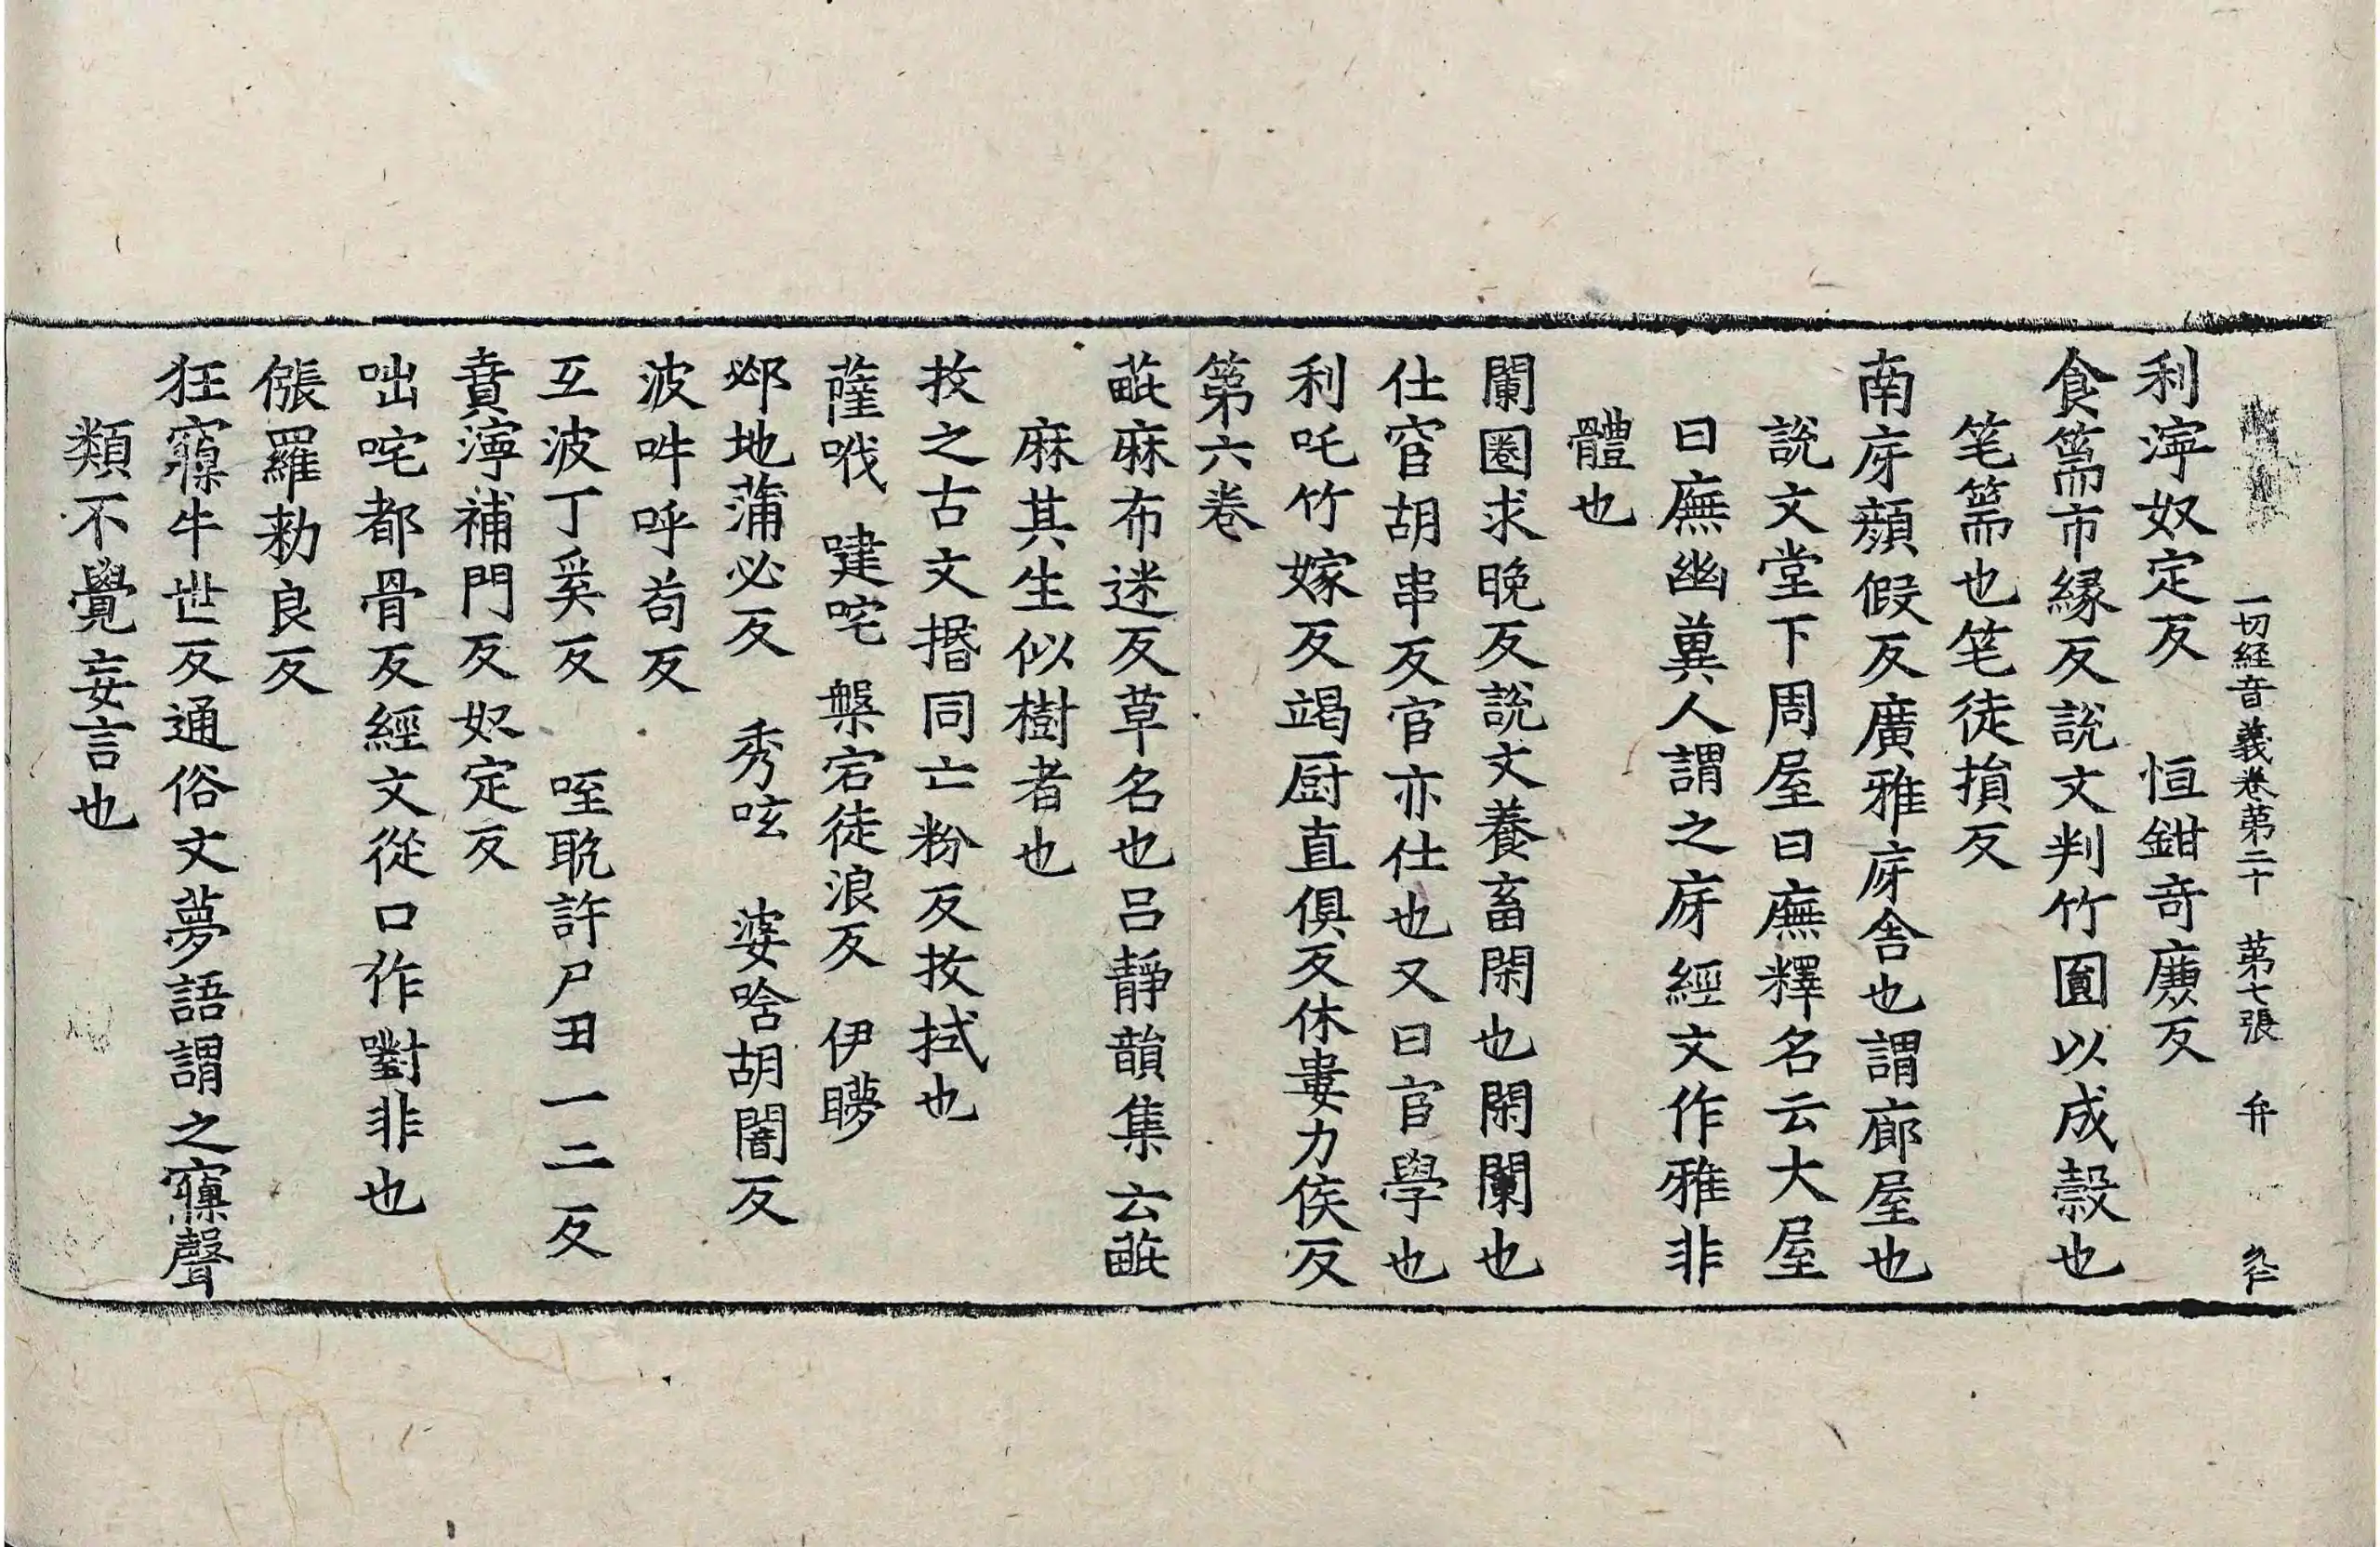 一切経音義卷第二十　第七張　弁
利濘奴定反　恒鉗竒廉反
食篅市縁反說文判竹圎以成糓也
笔篅也笔徒損反
南庌顔假反廣雅庌舎也謂廊屋也
說文堂下周屋曰廡釋名云大屋
曰廡幽兾人謂之庌經文作雅非
體也
闌圈求晚反說文養畜閑也閑闌也
仕宦胡串反宦亦仕也又曰宦學也
利吒竹嫁反竭厨直俱反休婁力侯反
第六卷
䕷麻布迷反草名也吕靜韻集云䕷
麻其生似樹者也
抆之古文㨉同亡粉反抆拭也
薩哦　㗴咤　槃宕徒浪反　伊矃
邲地蒲必反　秀呟　婆唅胡闇反
波吽呼苟反
㸦波丁奚反　咥䎳許尸田一二反
賁濘補門反奴定反
咄咤都骨反經文從口作嚉非也
倀羅勑良反
狂寱牛世反通俗文夢語謂之寱聲
類不覺妄言也